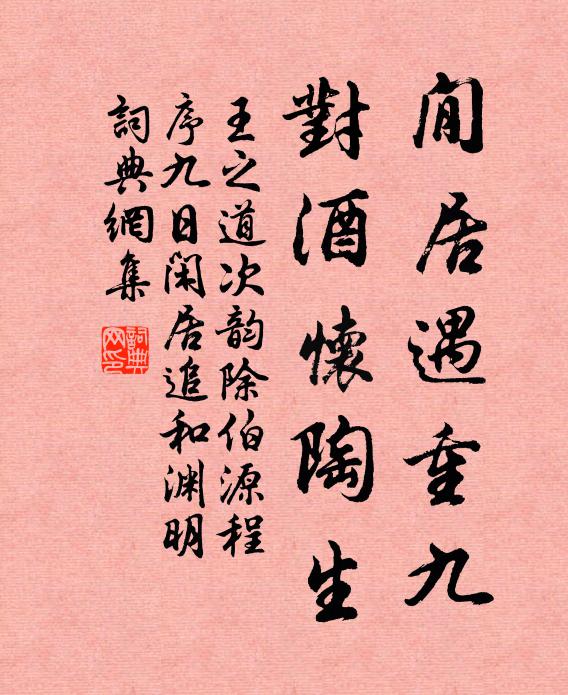 閒居遇重九
對酒懷陶生
王之道次韵除伯源程
序九日闲居追和渊明
詞典網集
詞典
网印